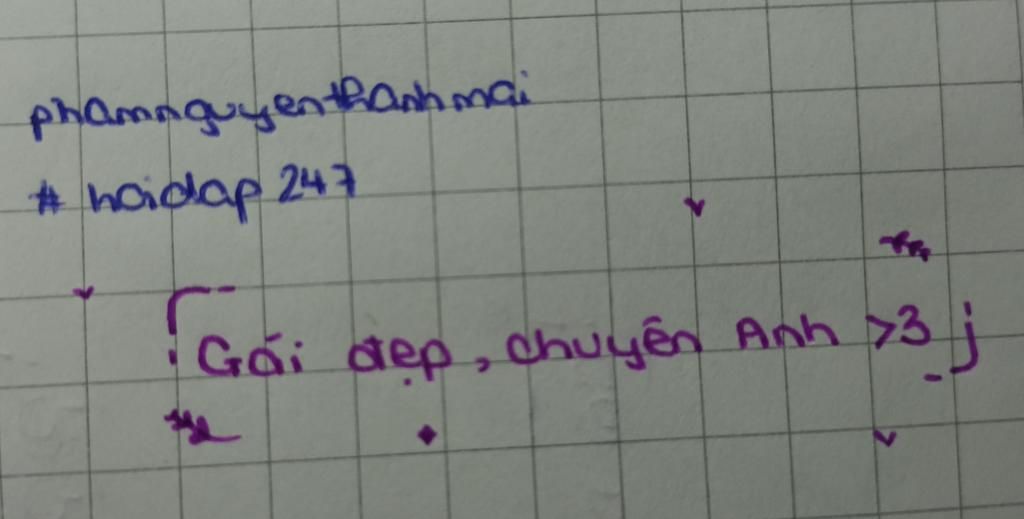 phamnguyenthanhmai
# hoidap 247
Gái đẹp, chuyên Anh >3